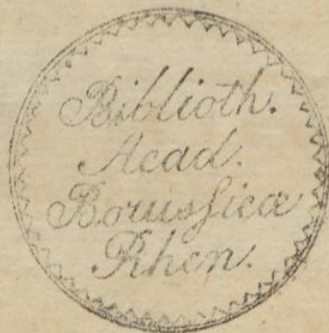 Biblioth.
Acad.
Borussicæ
Rhen.